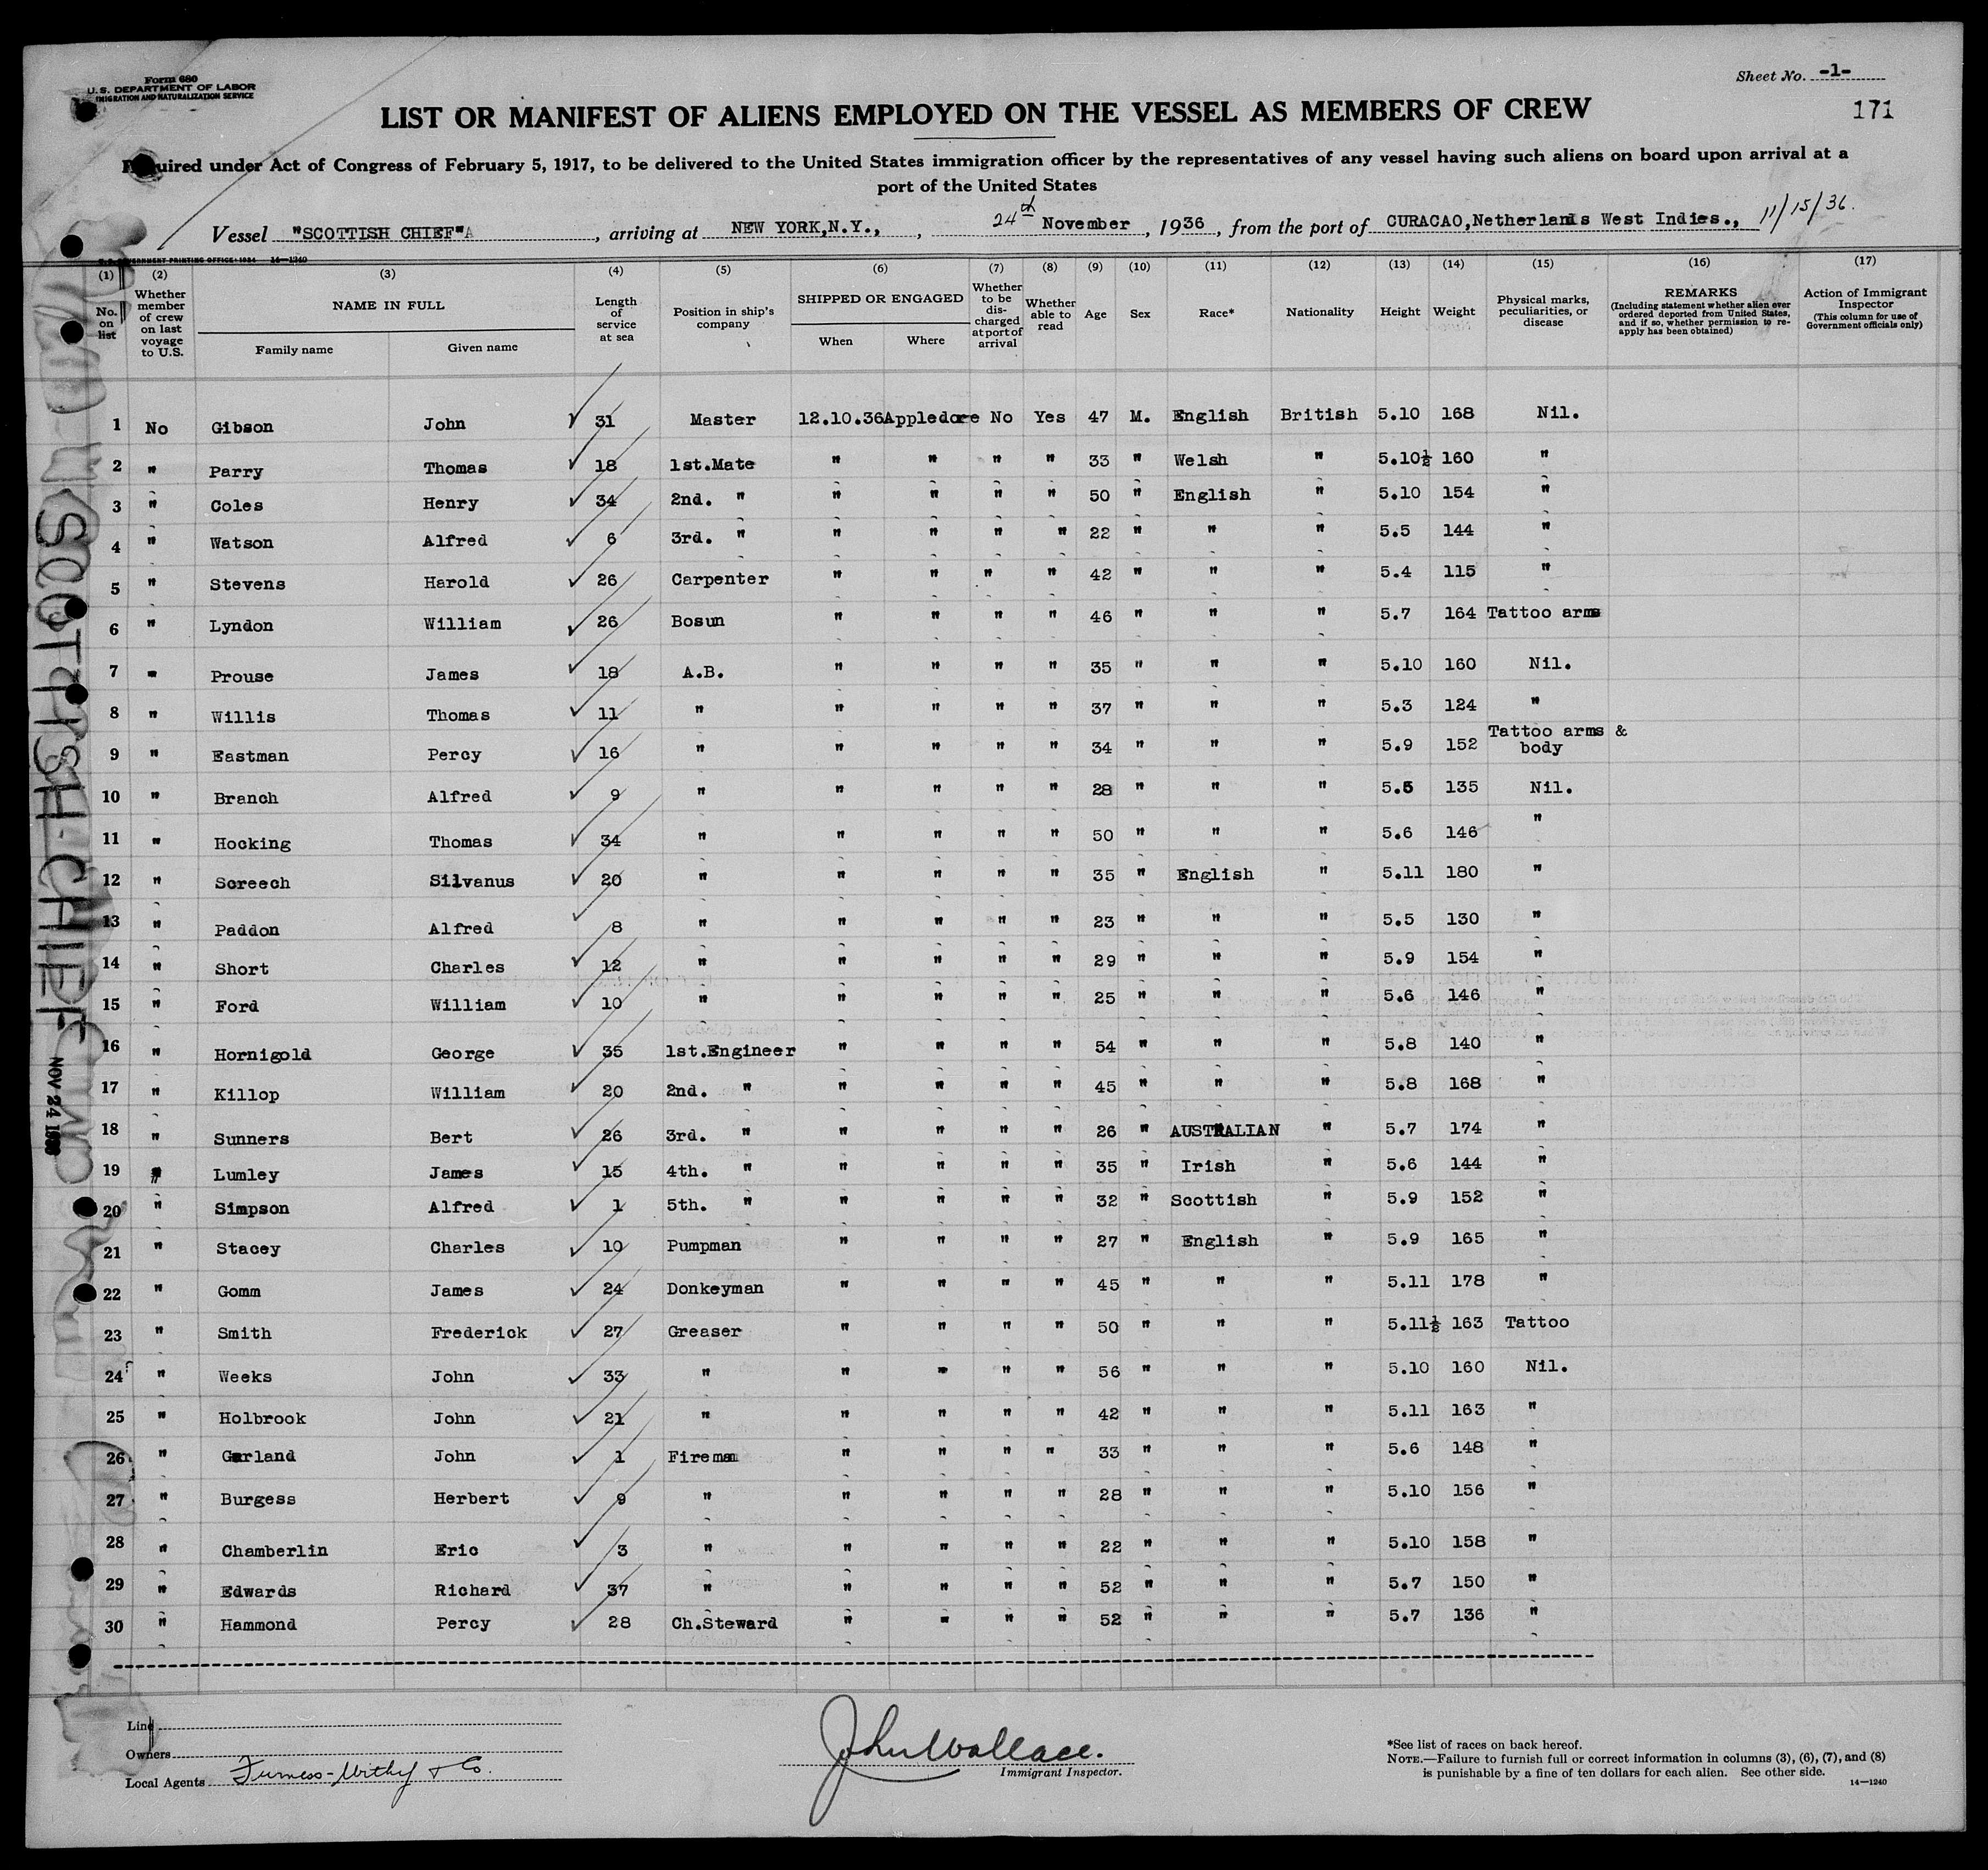 Form 680
U. S. DEPARTMENT OF LABOR
IMMIGRATION AND NATURALIZATION SERVICE
Sheet No. -1-
171
LIST OR MANIFEST OF ALIENS EMPLOYED ON THE VESSEL AS MEMBERS OF CREW
Required under Act of Congress of February 5, 1917, to be delivered to the United States immigration officer by the representatives of any vessel having such aliens on board upon arrival at a
port of the United States
Vessel "SCOTTISH CHIEF", arriving at NEW YORK,N.Y., , 24th November, 1936, from the port of CURACAO,Netherlands West Indies., 11/15/36.
U. S. GOVERNMENT PRINTING OFFICE: 1934 14—1240
(1) (2) (3) (4) (5) (6) (7) (8) (9) (10) (11) (12) (13) (14) (15) (16) (17)
No. on list
Whether member of crew on last voyage to U.S.
NAME IN FULL
Family name Given name
Length of service at sea
Position in ship's company
SHIPPED OR ENGAGED
When Where
Whether to be discharged at port of arrival
Whether able to read
Age
Sex
Race*
Nationality
Height
Weight
Physical marks, peculiarities, or disease
REMARKS
(Including statement whether alien ever ordered deported from United States, and if so, whether permission to reapply has been obtained)
Action of Immigrant Inspector
(This column for use of Government officials only)
1 No Gibson John 31 Master 12.10.36 Appledore No Yes 47 M. English British 5.10 168 Nil.
2 " Parry Thomas 18 1st.Mate " " " " 33 " Welsh " 5.10½ 160 "
3 " Coles Henry 34 2nd. " " " " " 50 " English " 5.10 154 "
4 " Watson Alfred 6 3rd. " " " " " 22 " " " 5.5 144 "
5 " Stevens Harold 26 Carpenter " " " " 42 " " " 5.4 115 "
6 " Lyndon William 26 Bosun " " " " 46 " " " 5.7 164 Tattoo arms
7 " Prouse James 18 A.B. " " " " 35 " " " 5.10 160 Nil.
8 " Willis Thomas 11 " " " " " 37 " " " 5.3 124 "
9 " Eastman Percy 16 " " " " " 34 " " " 5.9 152 Tattoo arms & body
10 " Branch Alfred 9 " " " " " 28 " " " 5.5 135 Nil.
11 " Hocking Thomas 34 " " " " " 50 " " " 5.6 146 "
12 " Screech Silvanus 20 " " " " " 35 " English " 5.11 180 "
13 " Paddon Alfred 8 " " " " " 23 " " " 5.5 130 "
14 " Short Charles 12 " " " " " 29 " " " 5.9 154 "
15 " Ford William 10 " " " " " 25 " " " 5.6 146 "
16 " Hornigold George 35 1st.Engineer " " " " 54 " " " 5.8 140 "
17 " Killop William 20 2nd. " " " " " 45 " " " 5.8 168 "
18 " Sunners Bert 26 3rd. " " " " " 26 " AUSTRALIAN " 5.7 174 "
19 " Lumley James 15 4th. " " " " " 35 " Irish " 5.6 144 "
20 " Simpson Alfred 1 5th. " " " " " 32 " Scottish " 5.9 152 "
21 " Stacey Charles 10 Pumpman " " " " 27 " English " 5.9 165 "
22 " Gomm James 24 Donkeyman " " " " 45 " " " 5.11 178 "
23 " Smith Frederick 27 Greaser " " " " 50 " " " 5.11½ 163 Tattoo
24 " Weeks John 33 " " " " " 56 " " " 5.10 160 Nil.
25 " Holbrook John 21 " " " " " 42 " " " 5.11 163 "
26 " Garland John 1 Fireman " " " " 33 " " " 5.6 148 "
27 " Burgess Herbert 9 " " " " " 28 " " " 5.10 156 "
28 " Chamberlin Eric 3 " " " " " 22 " " " 5.10 158 "
29 " Edwards Richard 37 " " " " " 52 " " " 5.7 150 "
30 " Hammond Percy 28 Ch.Steward " " " " 52 " " " 5.7 136 "
SCOTTISH CHIEF
NOV 24 1936
Line
Owners
Local Agents Furness-Withy & Co.
John Wallace.
Immigrant Inspector.
*See list of races on back hereof.
NOTE.—Failure to furnish full or correct information in columns (3), (6), (7), and (8)
is punishable by a fine of ten dollars for each alien. See other side.
14—1240